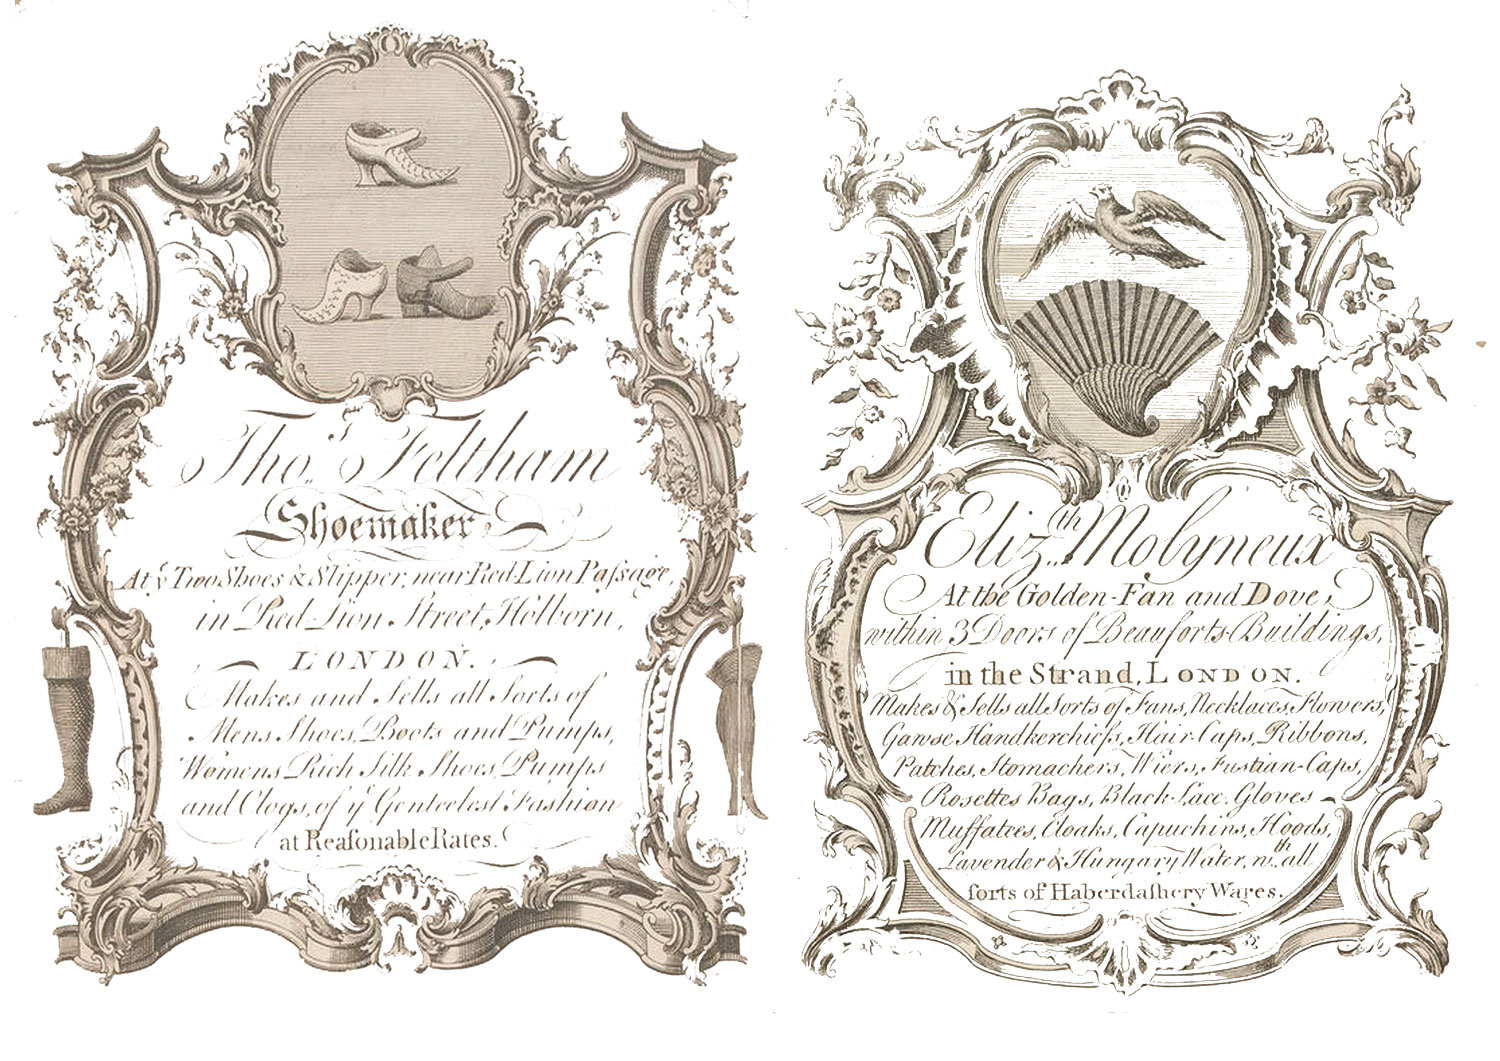 Tho.s Feltham
Shoemaker
At ye Two Shoes & Slipper, near Red-Lion Paſsage,
in Red-Lion Street, Holborn,
LONDON.
Makes and Sells all Sorts of
Mens Shoes, Boots and Pumps,
Womens Rich Silk Shoes, Pumps
and Clogs, of ye Genteelest Fashion
at Reaſonable Rates.
Eliz.th Molyneux
At the Golden-Fan and Dove,
within 3 Doors of Beauforts-Buildings,
in the Strand, LONDON.
Makes & Sells all Sorts of Fans, Necklaces, Flowers,
Gawse Handkerchiefs, Hair Caps, Ribbons,
Patches, Stomachers, Wiers, Fustian-Caps,
Rosettes Bags, Black-Lace, Gloves
Muffatees, Cloaks, Capuchins, Hoods,
Lavender & Hungary Water, wth all
ſorts of Haberdaſhery Wares.